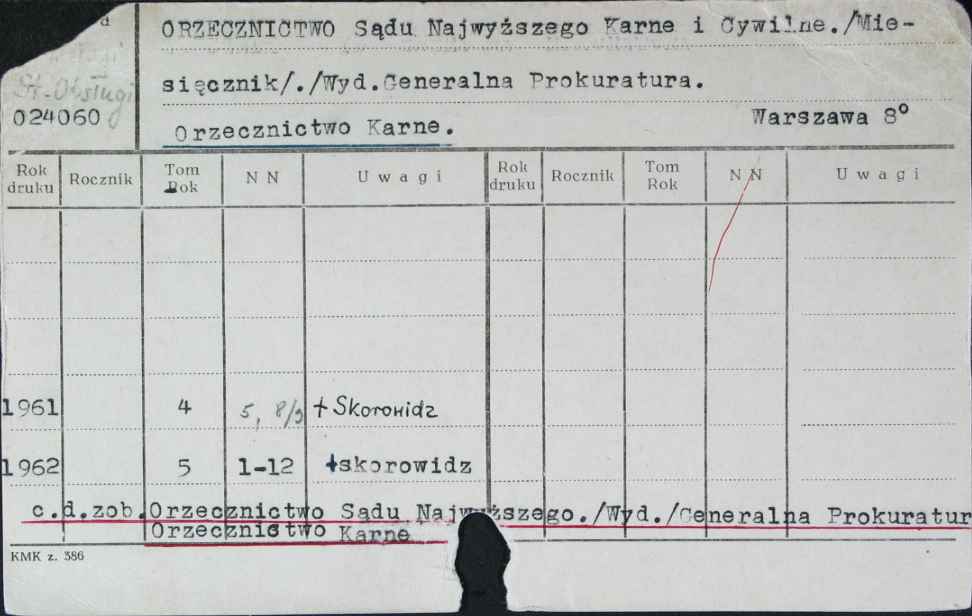 ORZECZNICTWO Sądu Najwyższego Karne i Cywilne./Mie-
sięcznik/./Wyd.Generalna Prokuratura.
St. Obsługi
024060
Orzecznictwo Karne.
Warszawa 8°
Rok druku Rocznik Tom Rok N N Uwagi Rok druku Rocznik Tom Rok N N Uwagi
1961 4 5, 8/9 + Skorowidz
1962 5 1-12 +skorowidz
c.d.zob.Orzecznictwo Sądu Najwyższego./Wyd./Generalna Prokuratur
Orzecznictwo Karne
KMK z. 386